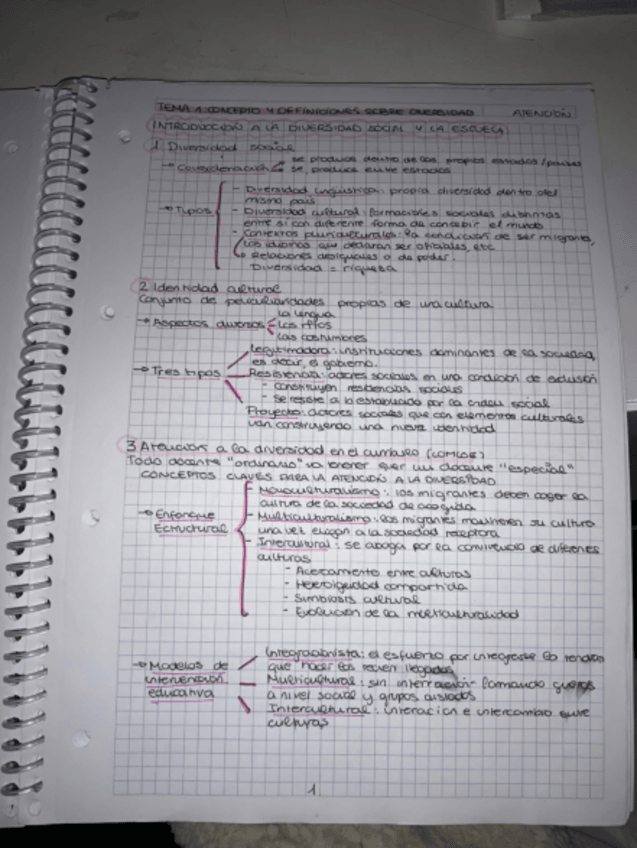 TEMA 1: CONCEPTO Y DEFINICIONES SOBRE DIVERSIDAD ATENCIÓN
INTRODUCCIÓN A LA DIVERSIDAD SOCIAL Y LA ESCUELA
1 Diversidad social
→ Consideración se produce dentro de los propios estados/países
se produce entre estados
→ Tipos
- Diversidad lingüística: propia diversidad dentro del
mismo país
- Diversidad cultural: formaciones sociales distintas
entre si con diferente forma de concebir el mundo
- Contextos pluriculturales: la condición de ser migrante,
los idiomas que declaran ser oficiales, etc
Relaciones desiguales o de poder.
Diversidad = riqueza
2 Identidad cultural
Conjunto de peculiaridades propias de una cultura
→ Aspectos diversos
la lengua
los ritos
las costumbres
→ Tres tipos
Legitimadora: instituciones dominantes de la sociedad,
es decir, el gobierno.
Resistencia: actores sociales en una condición de exclusión
- Construyen resistencias sociales
- Se resiste a lo establecido por la orden social
Proyecto: actores sociales que con elementos culturales
van construyendo una nueva identidad
3 Atención a la diversidad en el currículo (LOMLOE)
Todo docente "ordinario" va a tener que ser un docente "especial"
CONCEPTOS CLAVES PARA LA ATENCIÓN A LA DIVERSIDAD
→ Enfonque
Estructural
- Monoculturalismo: los migrantes deben coger la
cultura de la sociedad de acogida
- Multiculturalismo: los migrantes mantienen su cultura
una vez llegan a la sociedad receptora
- Intercultural: se aboga por la convivencia de diferentes
culturas
- Acercamiento entre culturas
- compartida
- Simbiosis cultural
- Evolución de la multiculturalidad
→ Modelos de
intervención
educativa
Integracionista: el esfuerzo por integrarse lo tendrán
que hacer los recién llegados
Multicultural: sin interacción formando
a nivel social y grupos aislados
Intercultural: interacion e intercambio entre
culturas
1